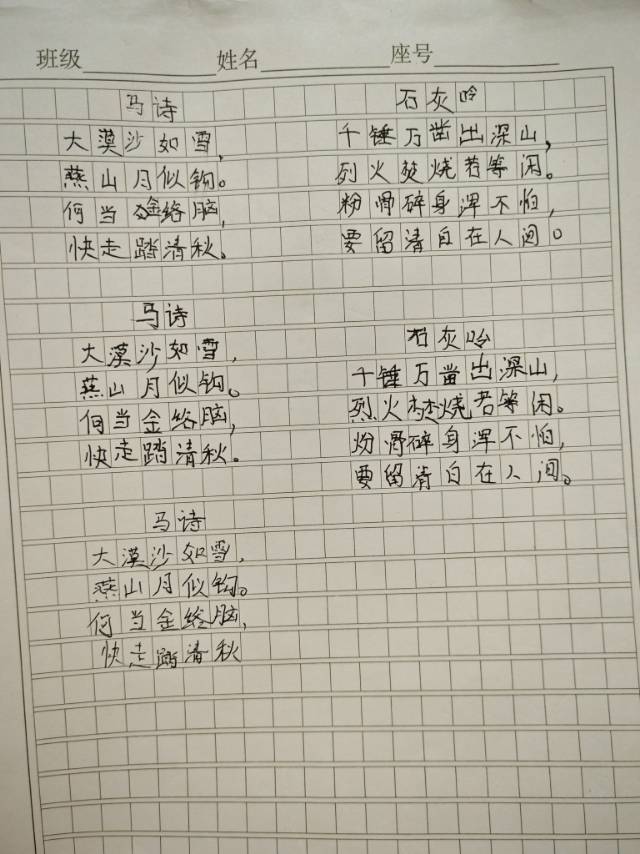 班级 姓名 座号
马诗
大漠沙如雪,
燕山月似钩。
何当金络脑,
快走踏清秋。
石灰吟
千锤万凿出深山,
烈火焚烧若等闲。
粉骨碎身浑不怕,
要留清白在人间。
马诗
大漠沙如雪,
燕山月似钩。
何当金络脑,
快走踏清秋。
石灰吟
千锤万凿出深山,
烈火焚烧若等闲。
粉骨碎身浑不怕,
要留清白在人间。
马诗
大漠沙如雪,
燕山月似钩。
何当金络脑,
快走踏清秋